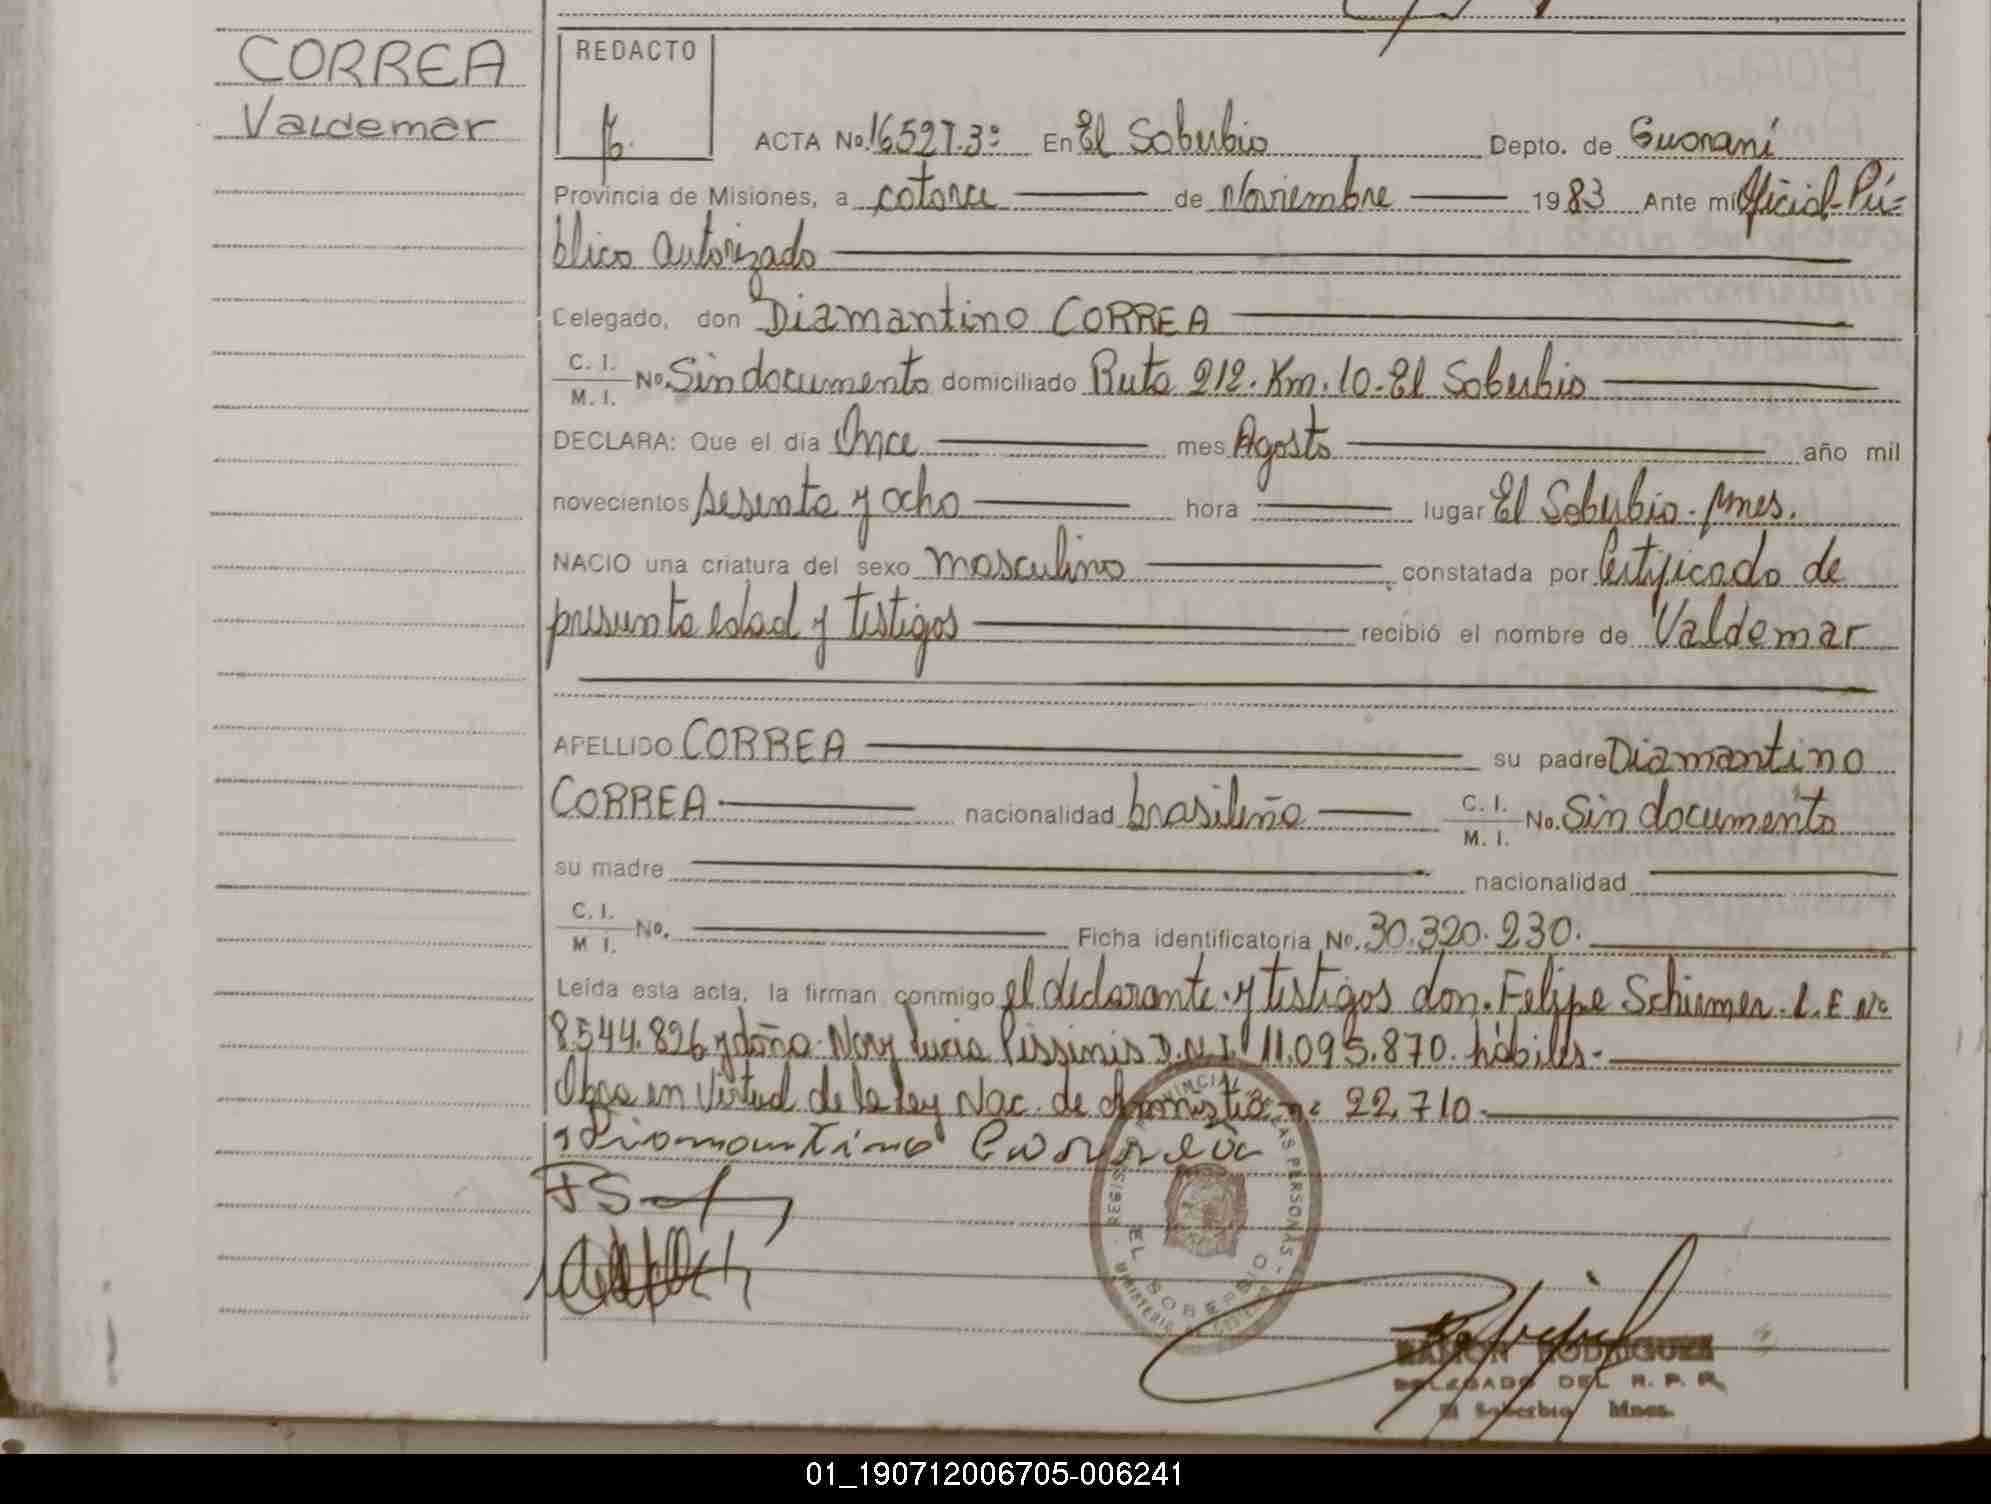 CORREA
Valdemar
REDACTO
ACTA No. 16527.3º En El Soberbio Depto. de Guaraní
Provincia de Misiones, a catorce de Noviembre 1983 Ante mi Oficial Pú=
blico autorizado
Celegado, don Diamantino CORREA
C. I.
M. I. No. Sin documento domiciliado Ruta 212. Km. 10. El Soberbio
DECLARA: Que el día Once mes Agosto año mil
novecientos sesenta y ocho hora lugar El Soberbio. Mnes.
NACIO una criatura del sexo masculino constatada por Certificado de
presunta edad y testigos recibió el nombre de Valdemar
APELLIDO CORREA su padre Diamantino
CORREA nacionalidad brasileña C. I.
M. I. No. Sin documento
su madre nacionalidad
C. I.
M I. No. Ficha identificatoria No. 30.320.230.
Leída esta acta, la firman conmigo el declarante y testigos don. Felipe L.E Nº
8544.826 y doña Lucia D.N.I. 11.095.870. hábiles.
Obra en Virtud de la ley Nac. de Amnistia nº 22.710.
Diamantino Correa
FS
REGISTRO PROVINCIAL DE LAS PERSONAS
EL SOBERBIO
RAMON RODRIGUEZ
DELEGADO DEL R. P. P.
El Soberbio Mnes.
01_190712006705-006241